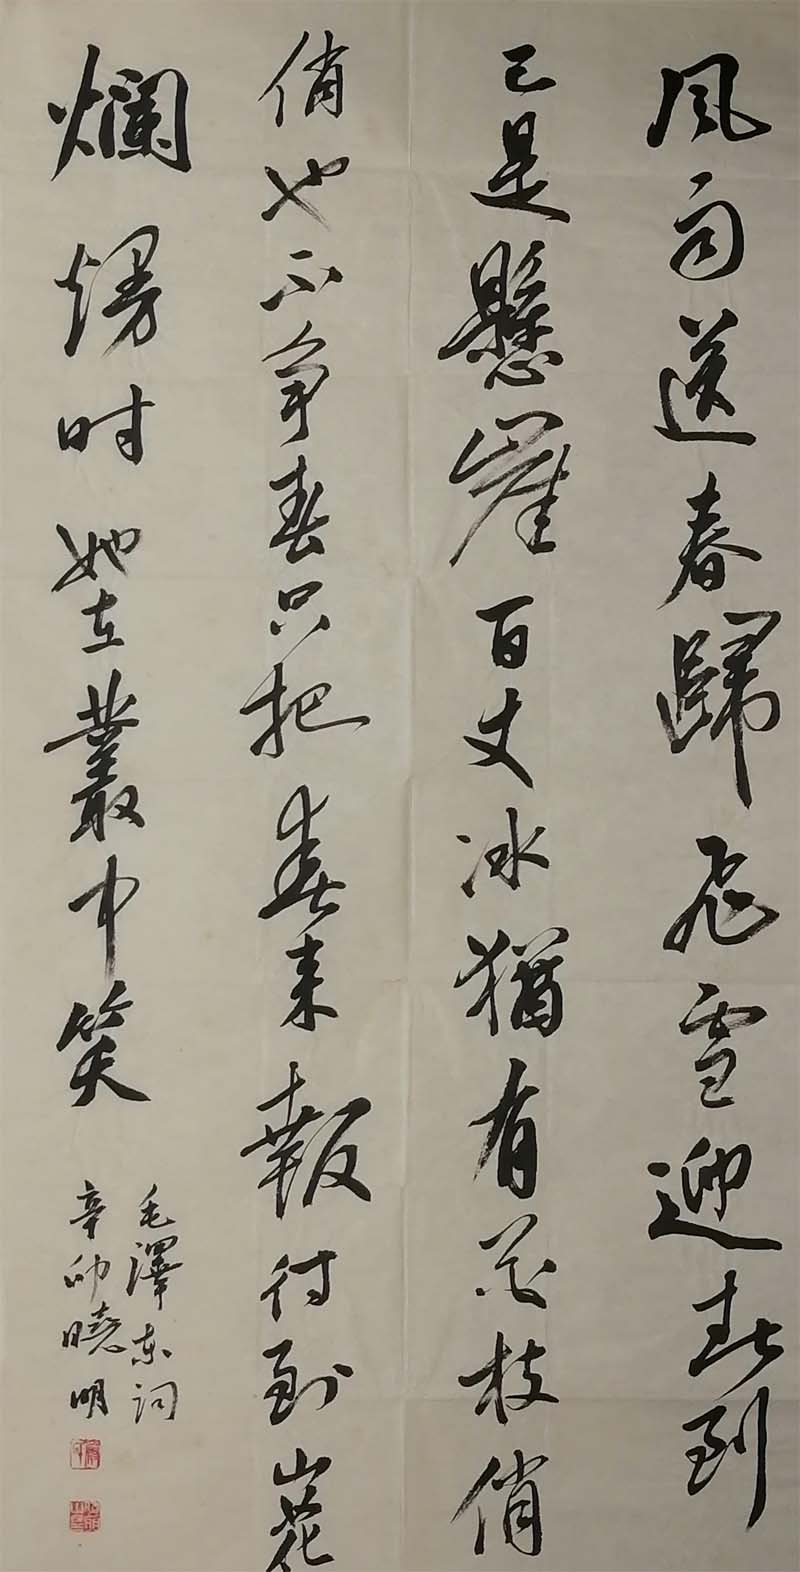 风雨送春歸飞雪迎春到
已是懸崖百丈冰猶有花枝俏
俏也不争春只把春来報待到山花
爛熳时她在叢中笑
毛澤东词
辛卯曉明